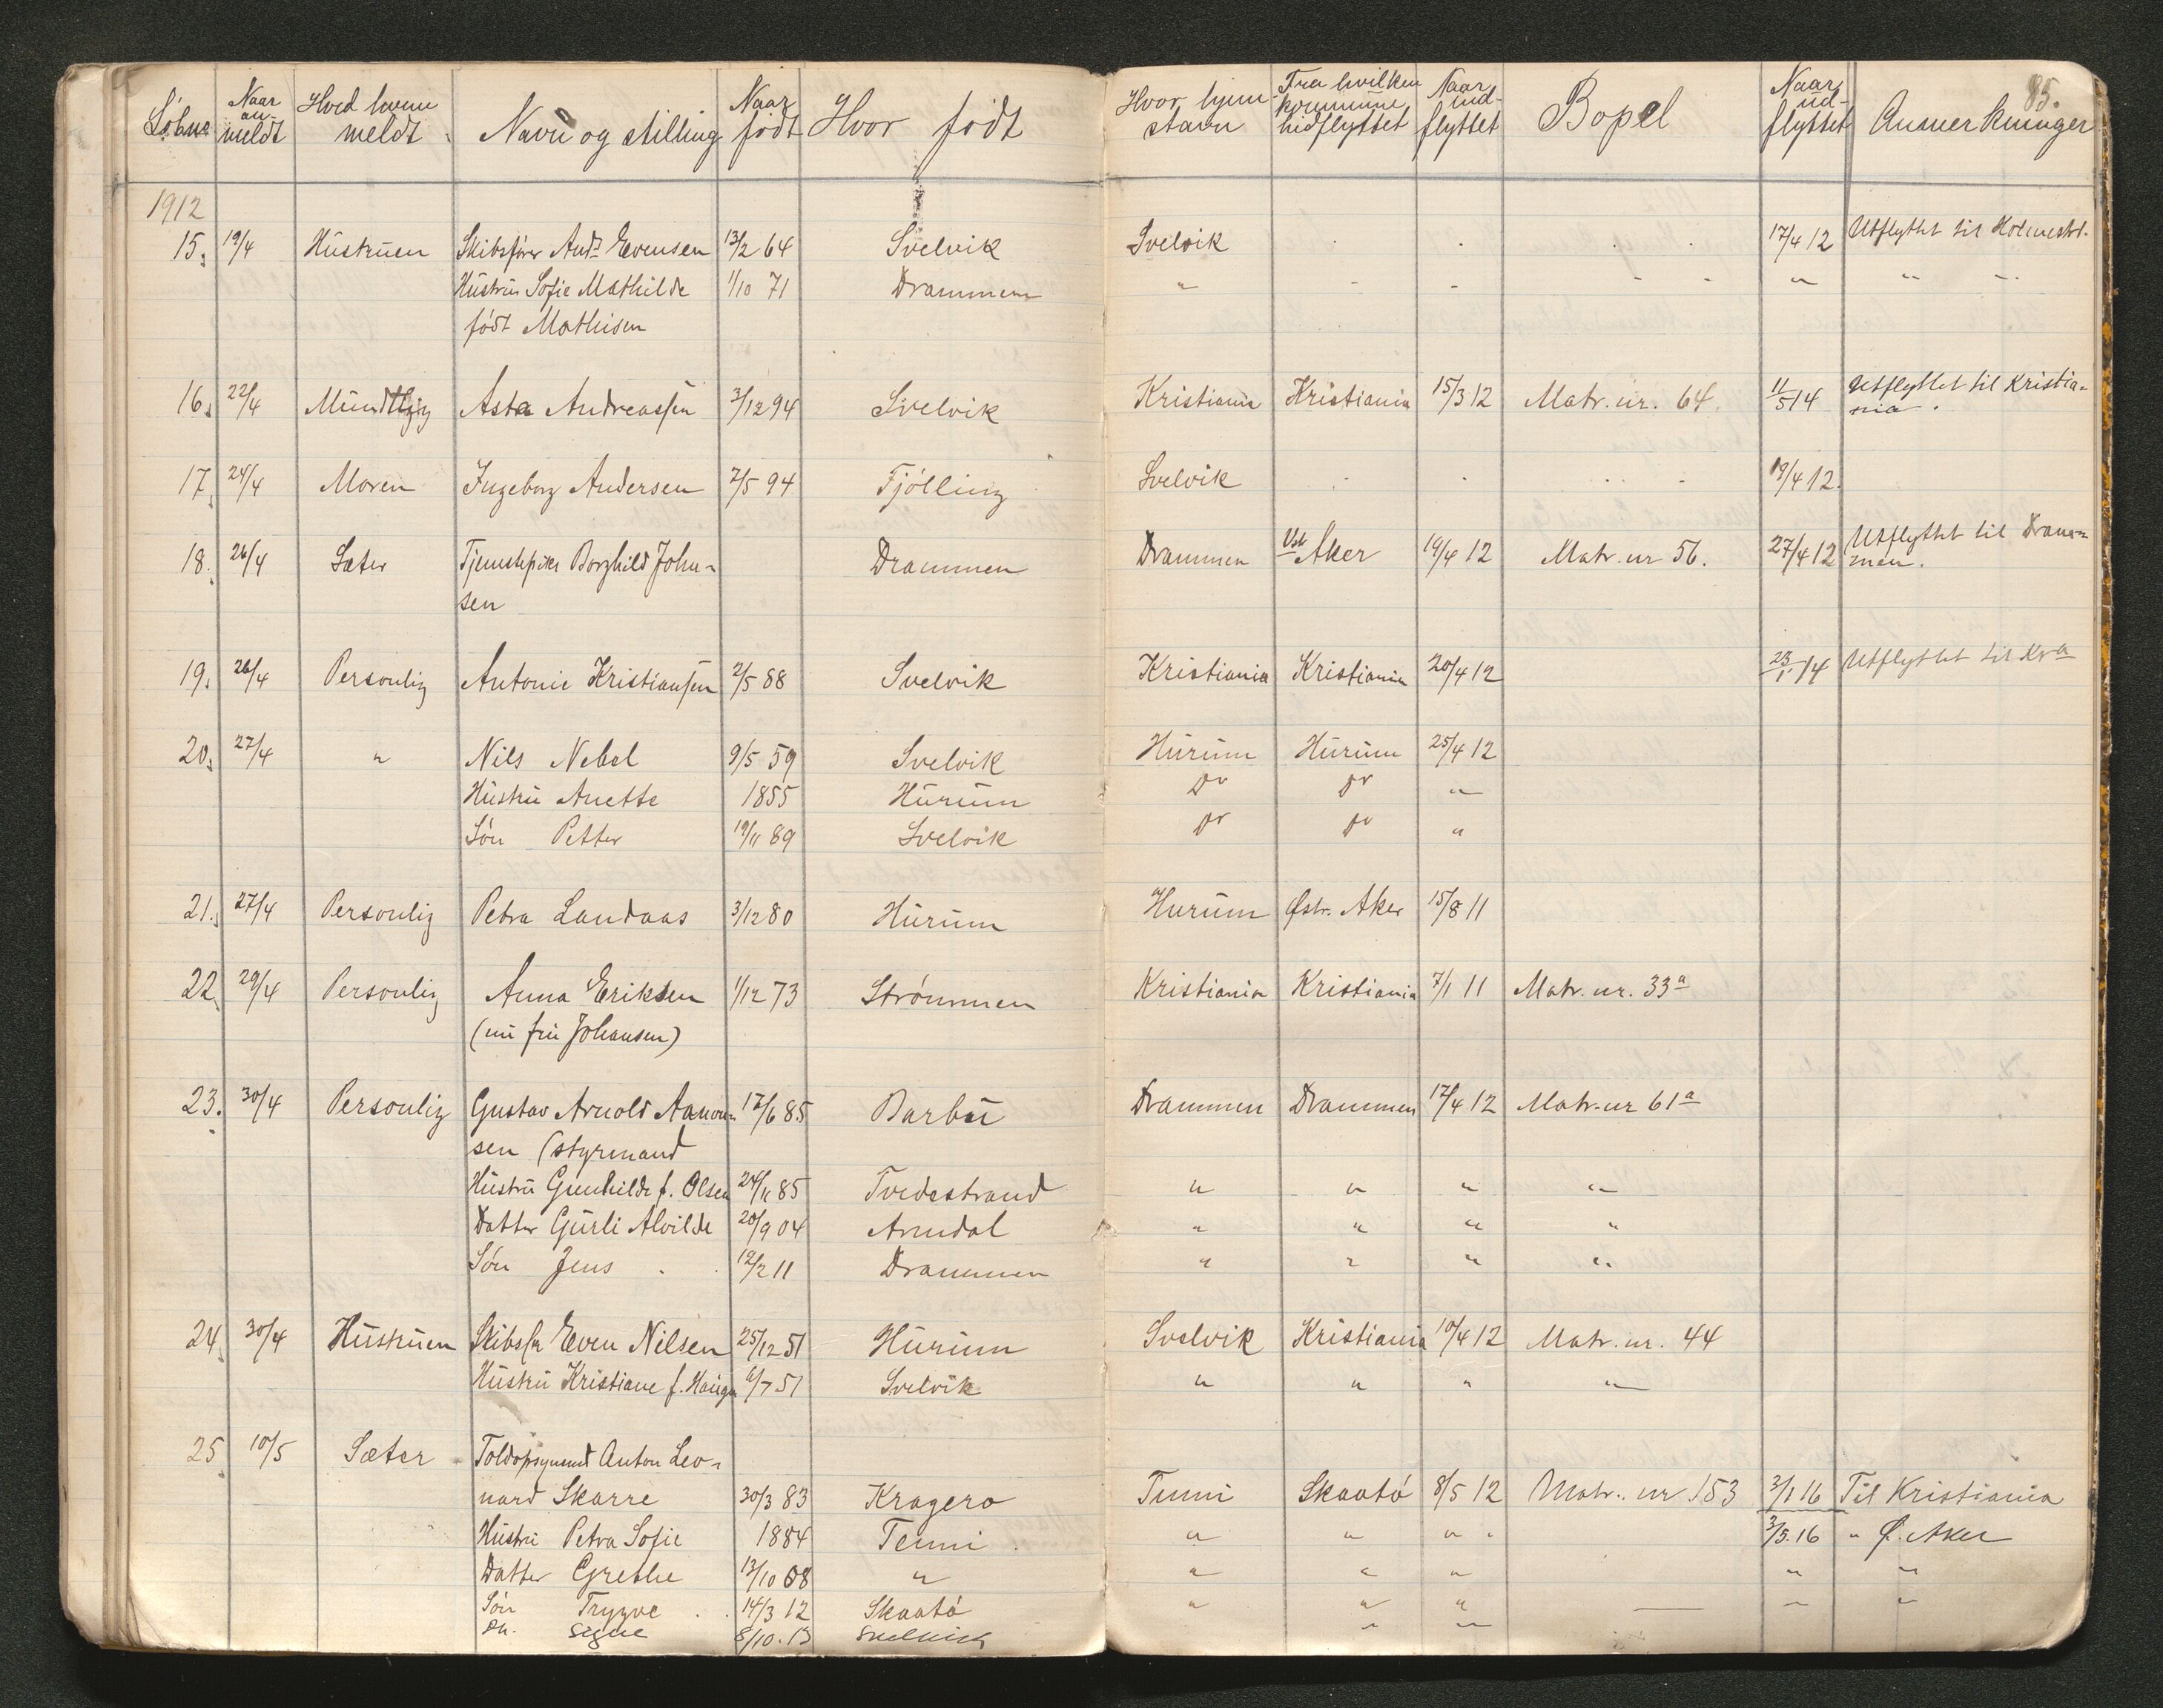 85.
Løbne Naar anmeldt Hved hvem meldt. Navn og stilling Naar født Hvor født Hvor hjemstavn Fra hvilken kommune hidflyttet Naar indflyttet Bopel Naar udflyttet Anmerkninger
1912
15. 19/4 Hustruen Skibsfører Andr. Evensen 13/2 64 Svelvik Svelvik 17/4 12 Utflyttet til Holmestr.
Hustru Sofie Mathilde 1/10 71 Drammen " - - - - " " -
født Mathisen
16. 22/4 Mundtlig Asta Andreassen 3/12 94 Svelvik Kristiania Kristiania 15/3 12 Matr. nr. 64. 11/5 14 Utflyttet til Kristia-
nia.
17. 24/4 Moren Ingeborg Andersen 7/5 94 Tjølling Svelvik 19/4 12.
18. 26/4 Sæter Tjenestepike Borghild John- Drammen Drammen Vstr Aker 19/4 12 Matr. nr 56. 27/4 12 Utflyttet til Dram-
sen men.
19. 26/4 Personlig Antonie Kristiansen 2/5 88 Svelvik Kristiania Kristiania 20/4 12 23/1 14 Utflyttet til Kra
20. 27/4 " Nils Nebel 9/5 59 Svelvik Hurum Hurum 25/4 12
Hustru Anette 1855 Hurum Do Do "
Søn Petter 19/11 89 Svelvik Do Do "
21. 27/4 Personlig Petra Landaas 3/12 80 Hurum Hurum Østr. Aker 15/8 11
22. 29/4 Personlig Anna Eriksen 1/12 73 Strømmen Kristiania Kristiania 7/1 11 Matr. nr. 33a
(nu fru Johansen)
23. 30/4 Personlig Gustav Arnold Aanon- 17/6 85 Barbu Drammen Drammen 17/4 12 Matr. nr 61a
sen (styrmand
Hustru Gunhilde f. Olsen 24/11 85 Tvedestrand " " " "
Datter Gurli Alvilde 20/9 04 Arndal " " " "
Søn Jens 12/2 11 Drammen " " " "
24. 30/4 Hustruen Skibsfr Even Nilsen 25/12 51 Hurum Svelvik Kristiania 10/4 12 Matr. nr. 44
Hustru Kristiane f. Haugn 6/7 51 Svelvik " " " "
25. 10/5 Sæter Toldopsynsmd Anton Leo-
nard Skarre 30/3 83 Kragerø Skaatø 8/5 12 Matr. nr 153 2/1 16 Til Kristiania
Hustru Petra Sofie 1884 " " " 3/5. 16 " Ø. Aker
Datter Grethe 13/10 08 " " " " " "
Søn Trygve 14/3 12 Skaatø " " " " "
Do. Signe 8/10. 13 Svelvick " "